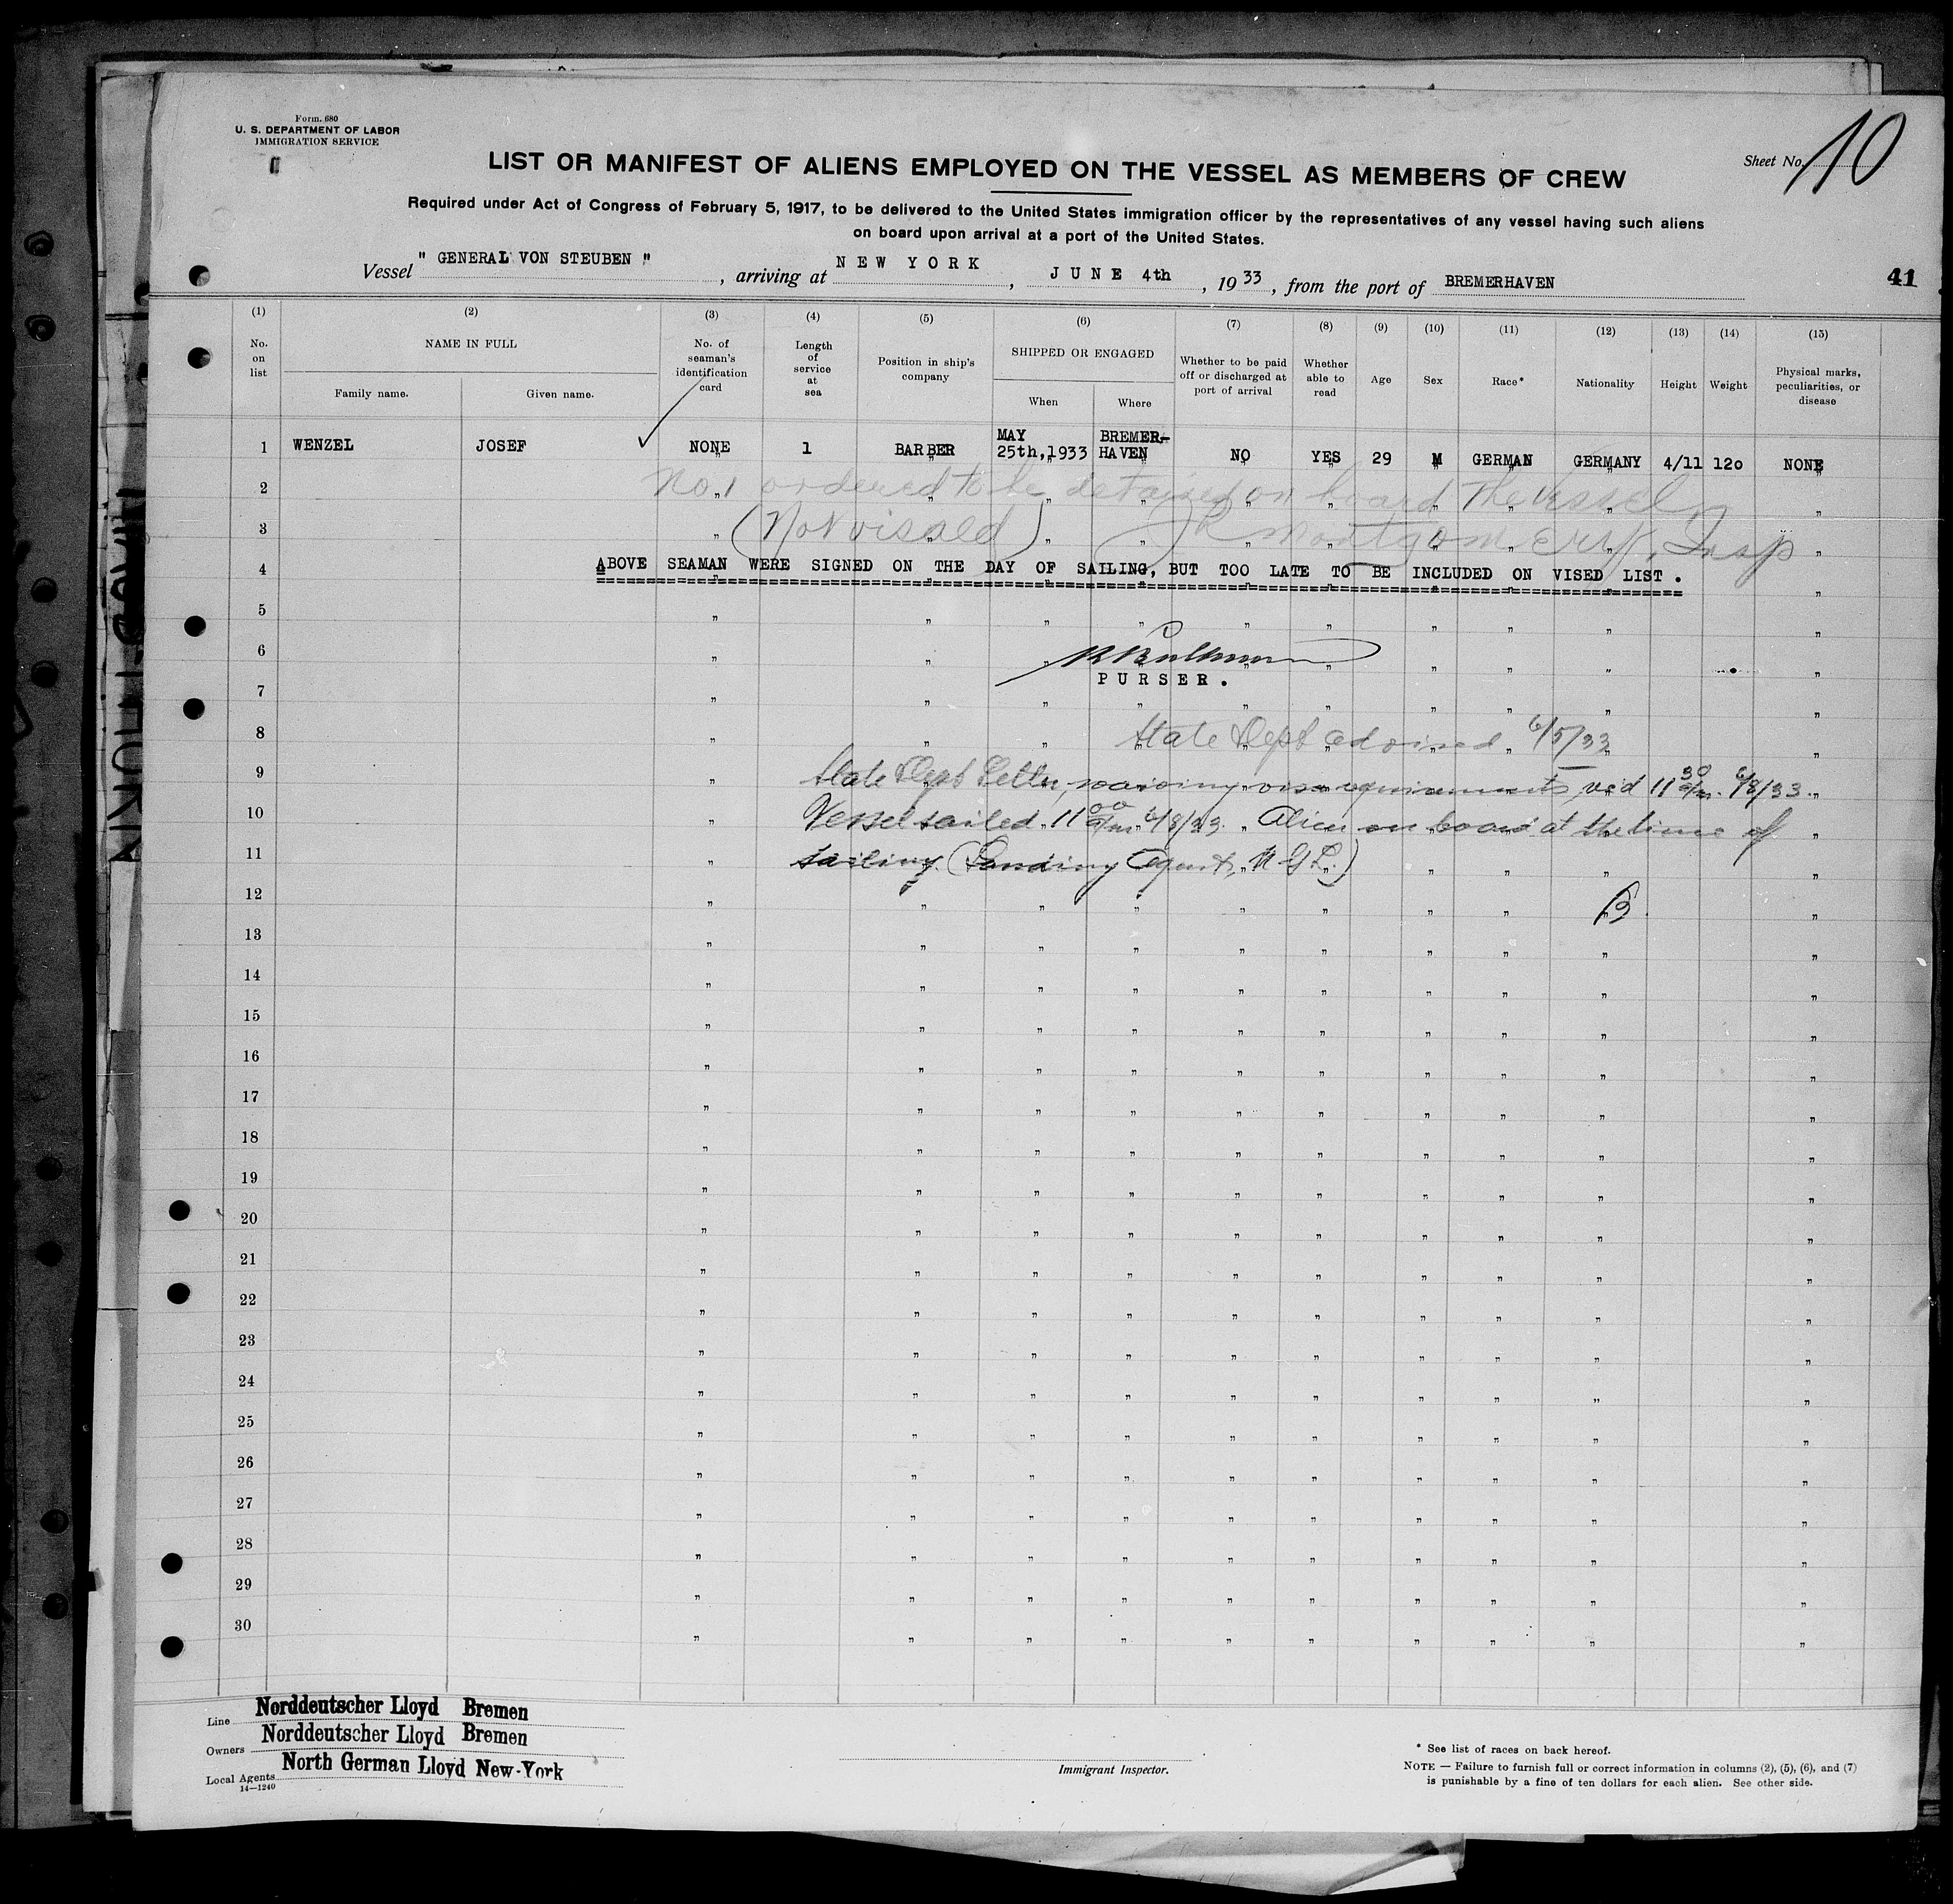 Form. 680
U. S. DEPARTMENT OF LABOR
IMMIGRATION SERVICE
Sheet No. 10
LIST OR MANIFEST OF ALIENS EMPLOYED ON THE VESSEL AS MEMBERS OF CREW
Required under Act of Congress of February 5, 1917, to be delivered to the United States immigration officer by the representatives of any vessel having such aliens
on board upon arrival at a port of the United States.
Vessel " GENERAL VON STEUBEN " , arriving at NEW YORK , JUNE 4th , 1933 , from the port of BREMERHAVEN
41
(1) (2) (3) (4) (5) (6) (7) (8) (9) (10) (11) (12) (13) (14) (15)
No. on list
NAME IN FULL
Family name.
Given name.
No. of seaman's identification card
Length of service at sea
Position in ship's company
SHIPPED OR ENGAGED
When
Where
Whether to be paid off or discharged at port of arrival
Whether able to read
Age
Sex
Race*
Nationality
Height
Weight
Physical marks, peculiarities, or disease
1 WENZEL JOSEF NONE 1 BARBER MAY 25th,1933 BREMER-HAVEN NO YES 29 M GERMAN GERMANY 4/11 120 NONE
2 No. 1 ordered to be detained on board the vessel
3 (Not visaed) R Montgomery, Insp
4 ABOVE SEAMAN WERE SIGNED ON THE DAY OF SAILING, BUT TOO LATE TO BE INCLUDED ON VISED LIST .
5
6
PURSER.
7
8 State Dept advised 6/5/33
9 State Dept Letter, waiving visa requirements, rec'd 11 30 a/m. 6/8/33.
10 Vessel sailed 11 00 a/m. 6/8/33. Alien on board at the time of
11 sailing. (Landing Agent, N G L.)
12 B.
13
14
15
16
17
18
19
20
21
22
23
24
25
26
27
28
29
30
Line Norddeutscher Lloyd Bremen
Owners Norddeutscher Lloyd Bremen
Local Agents North German Lloyd New-York
14—1240
Immigrant Inspector.
* See list of races on back hereof.
NOTE — Failure to furnish full or correct information in columns (2), (5), (6), and (7)
is punishable by a fine of ten dollars for each alien. See other side.